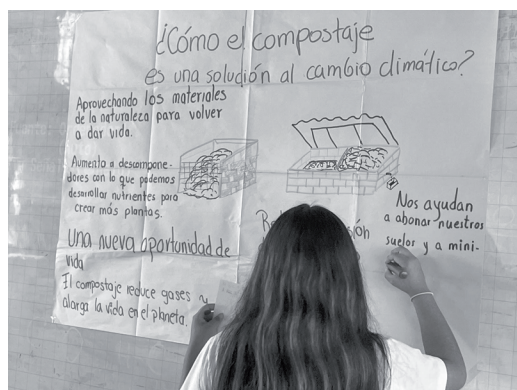 ¿Cómo el compostaje
es una solución al cambio climático?
Aprovechando los materiales
de la naturaleza para volver
a dar vida.
Aumento a descompone-
dores con lo que podemos
desarrollar nutrientes para
crear más plantas.
Una nueva oportunidad de
vida
El compostaje reduce gases y
alarga la vida en el planeta.
Nos ayudan
a abonar nuestros
suelos y a mini-